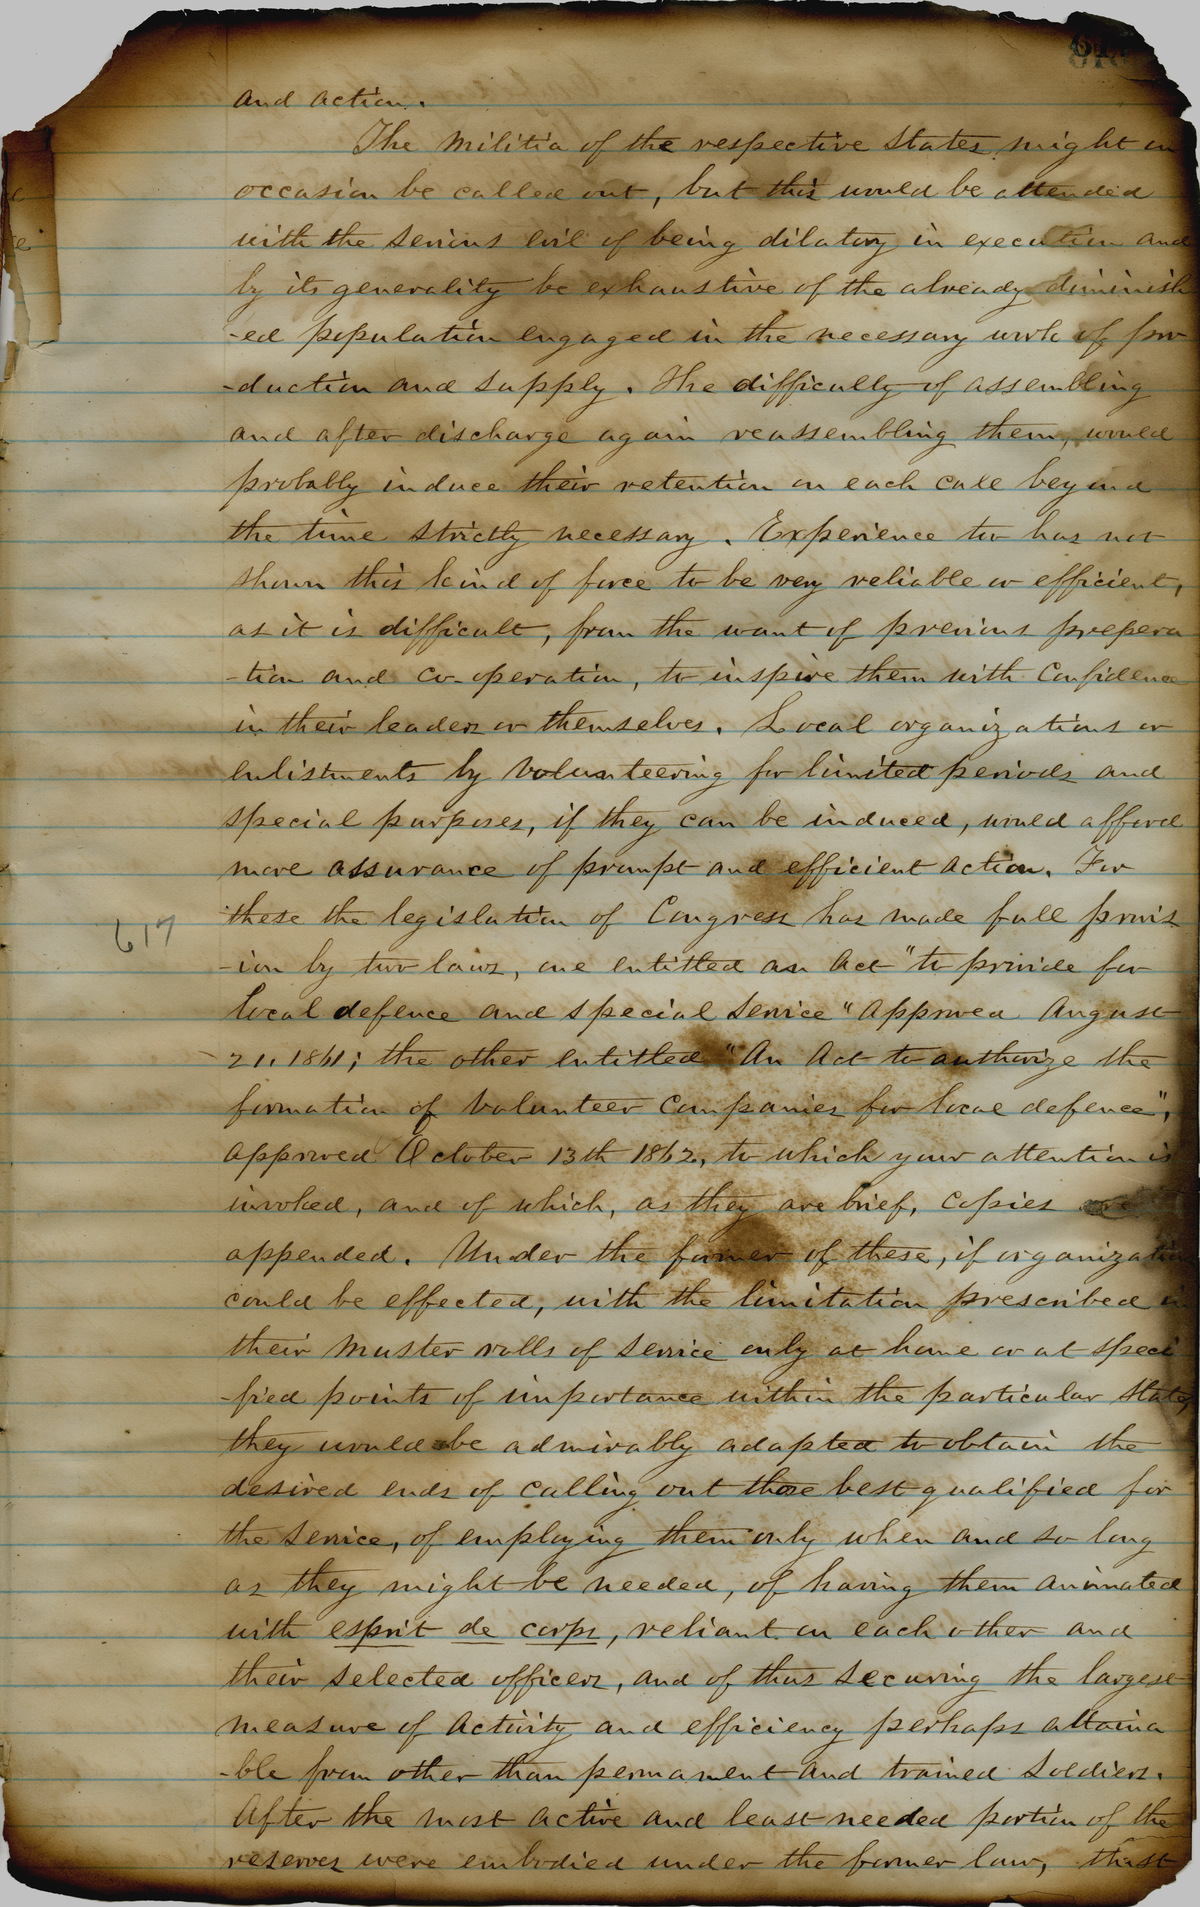 and action.
The Militia of the respective States might on
occasion be called out, but this would be attended
with the serious evil of being dilatory in execution and
by its generality be exhaustive of the already diminish
-ed population engaged in the necessary work of pro
-duction and supply. The difficulty of assembling
and after discharge again reassembling them, would
probably induce their retention on each call beyond
the time strictly necessary. Experience too has not
shown this kind of force to be very reliable or efficient,
as it is difficult, from the want of previous prepera
-tion and co-operation, to inspire them with Confidence
in their leaders or themselves. Local organizations or
enlistments by Volunteering for limited periods and
special purposes, if they can be induced, would afford
more assurance of prompt and efficient action. For
these the legislation of Congress has made full provis
617
-ion by two laws, one entitled an Act "to provide for
local defence and special service" approved August
21. 1861; the other entitled "An Act to authorize the
formation of Volunteer Companies for local defence",
approved October 13th 1862, to which your attention is
invoked, and of which, as they are brief, copies are
appended. Under the former of these, if organization
could be effected, with the limitation prescribed in
their muster rolls of service only at home or at speci
-fied points of importance within the particular State,
they would be admirably adapted to obtain the
desired ends of calling out those best qualified for
the service, of employing them only when and so long
as they might be needed, of having them animated
with esprit de corps, reliant on each other and
their selected officers, and of thus securing the largest
measure of activity and efficiency perhaps attaina
-ble from other than permanent and trained Soldiers.
After the most active and least needed portion of the
reserves were embodied under the former law,